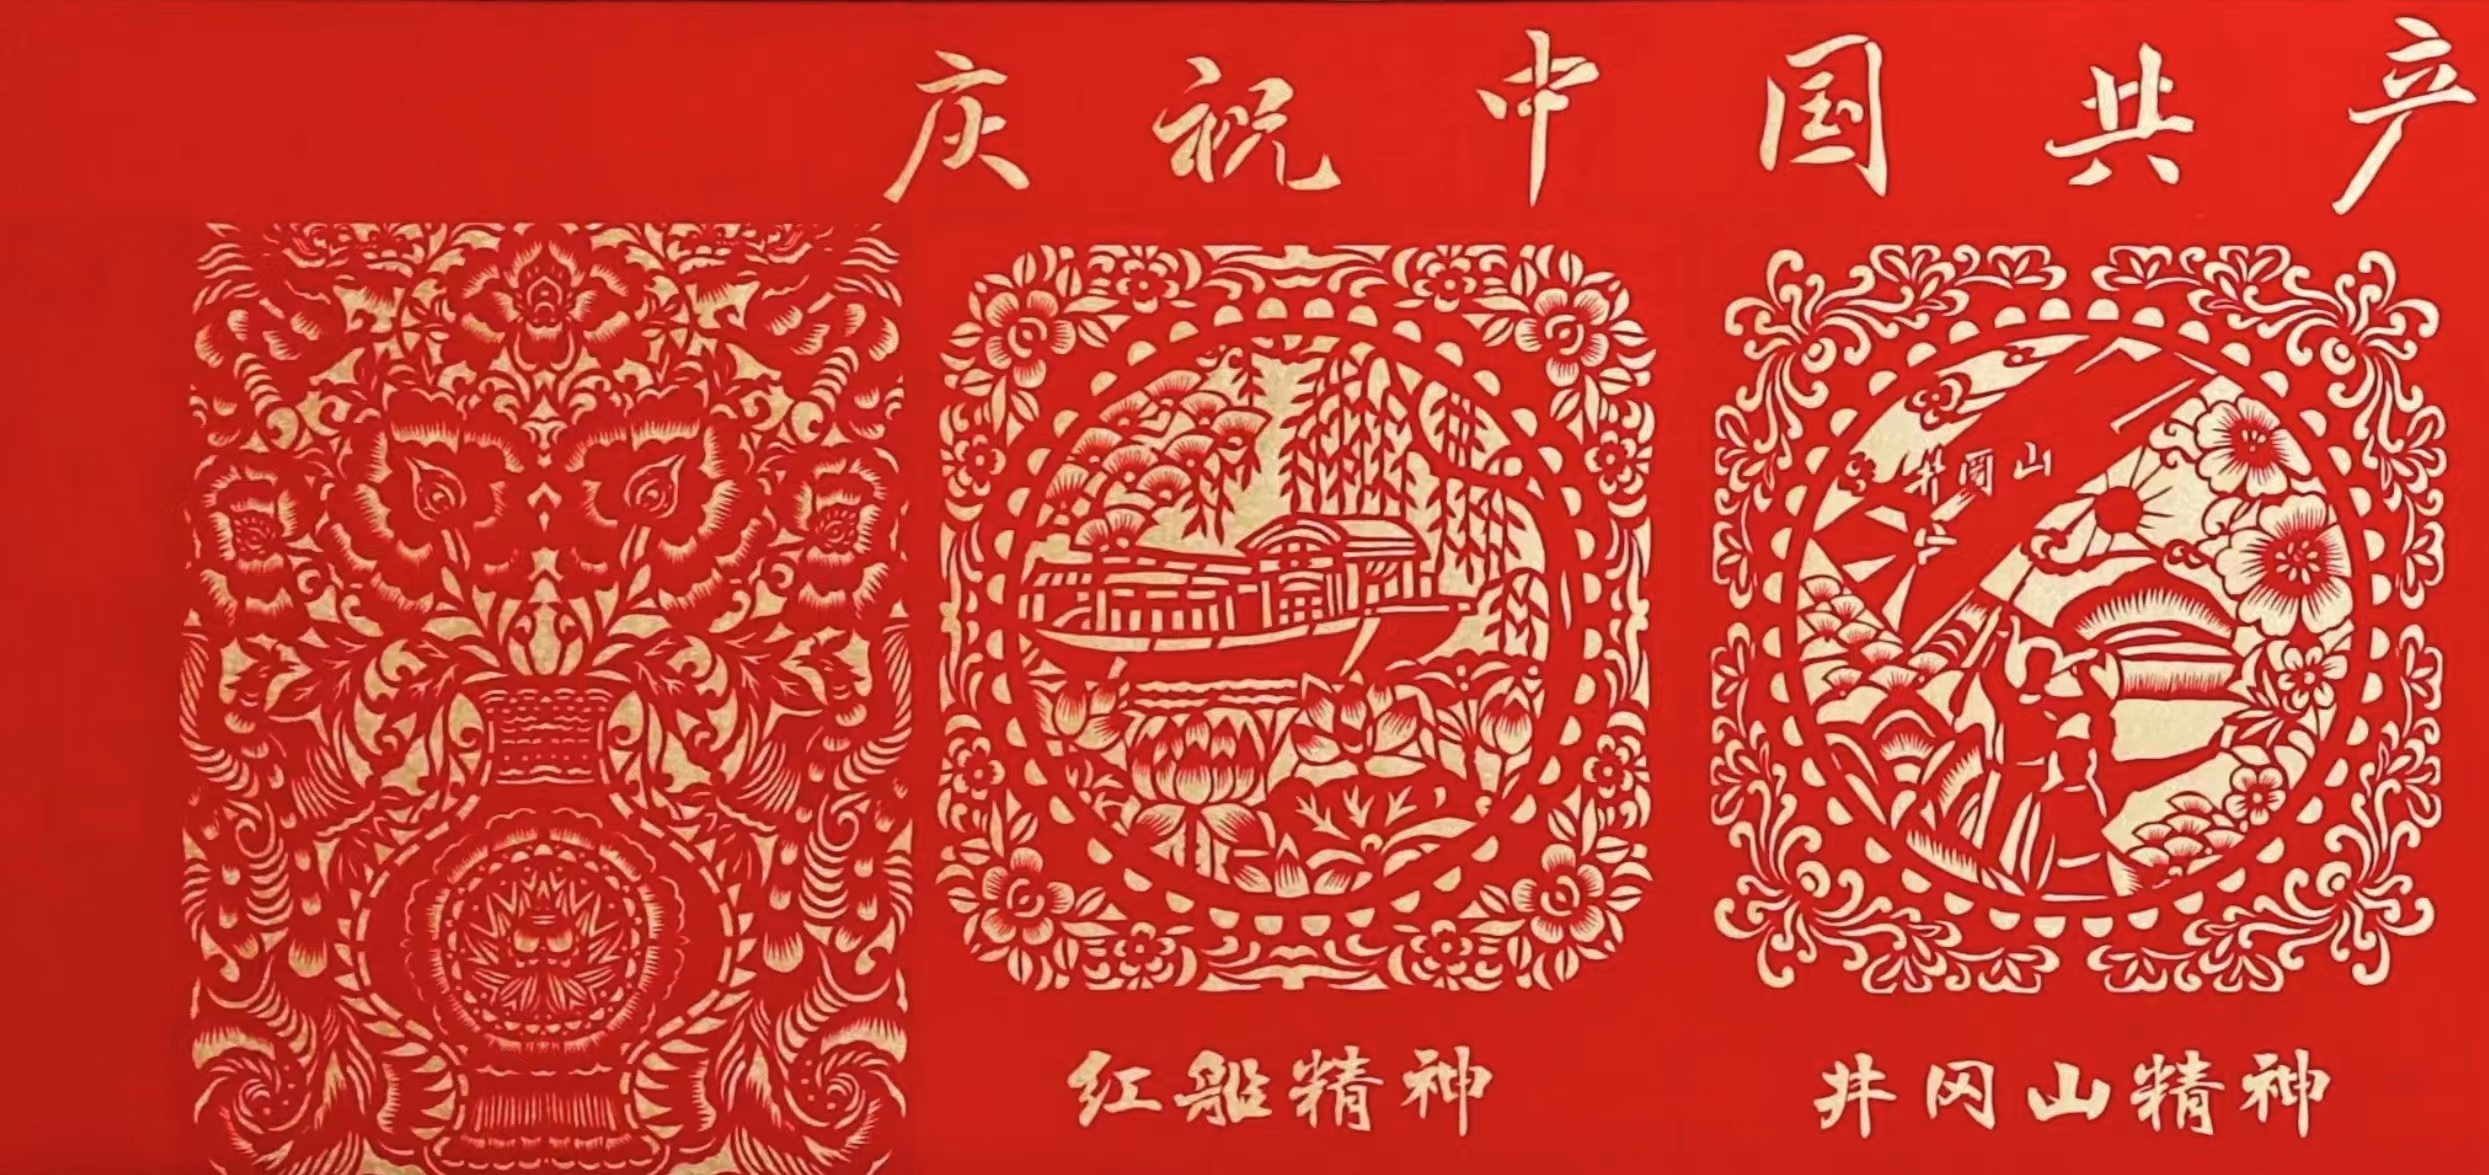 庆祝中国共产
井冈山
红船精神
井冈山精神